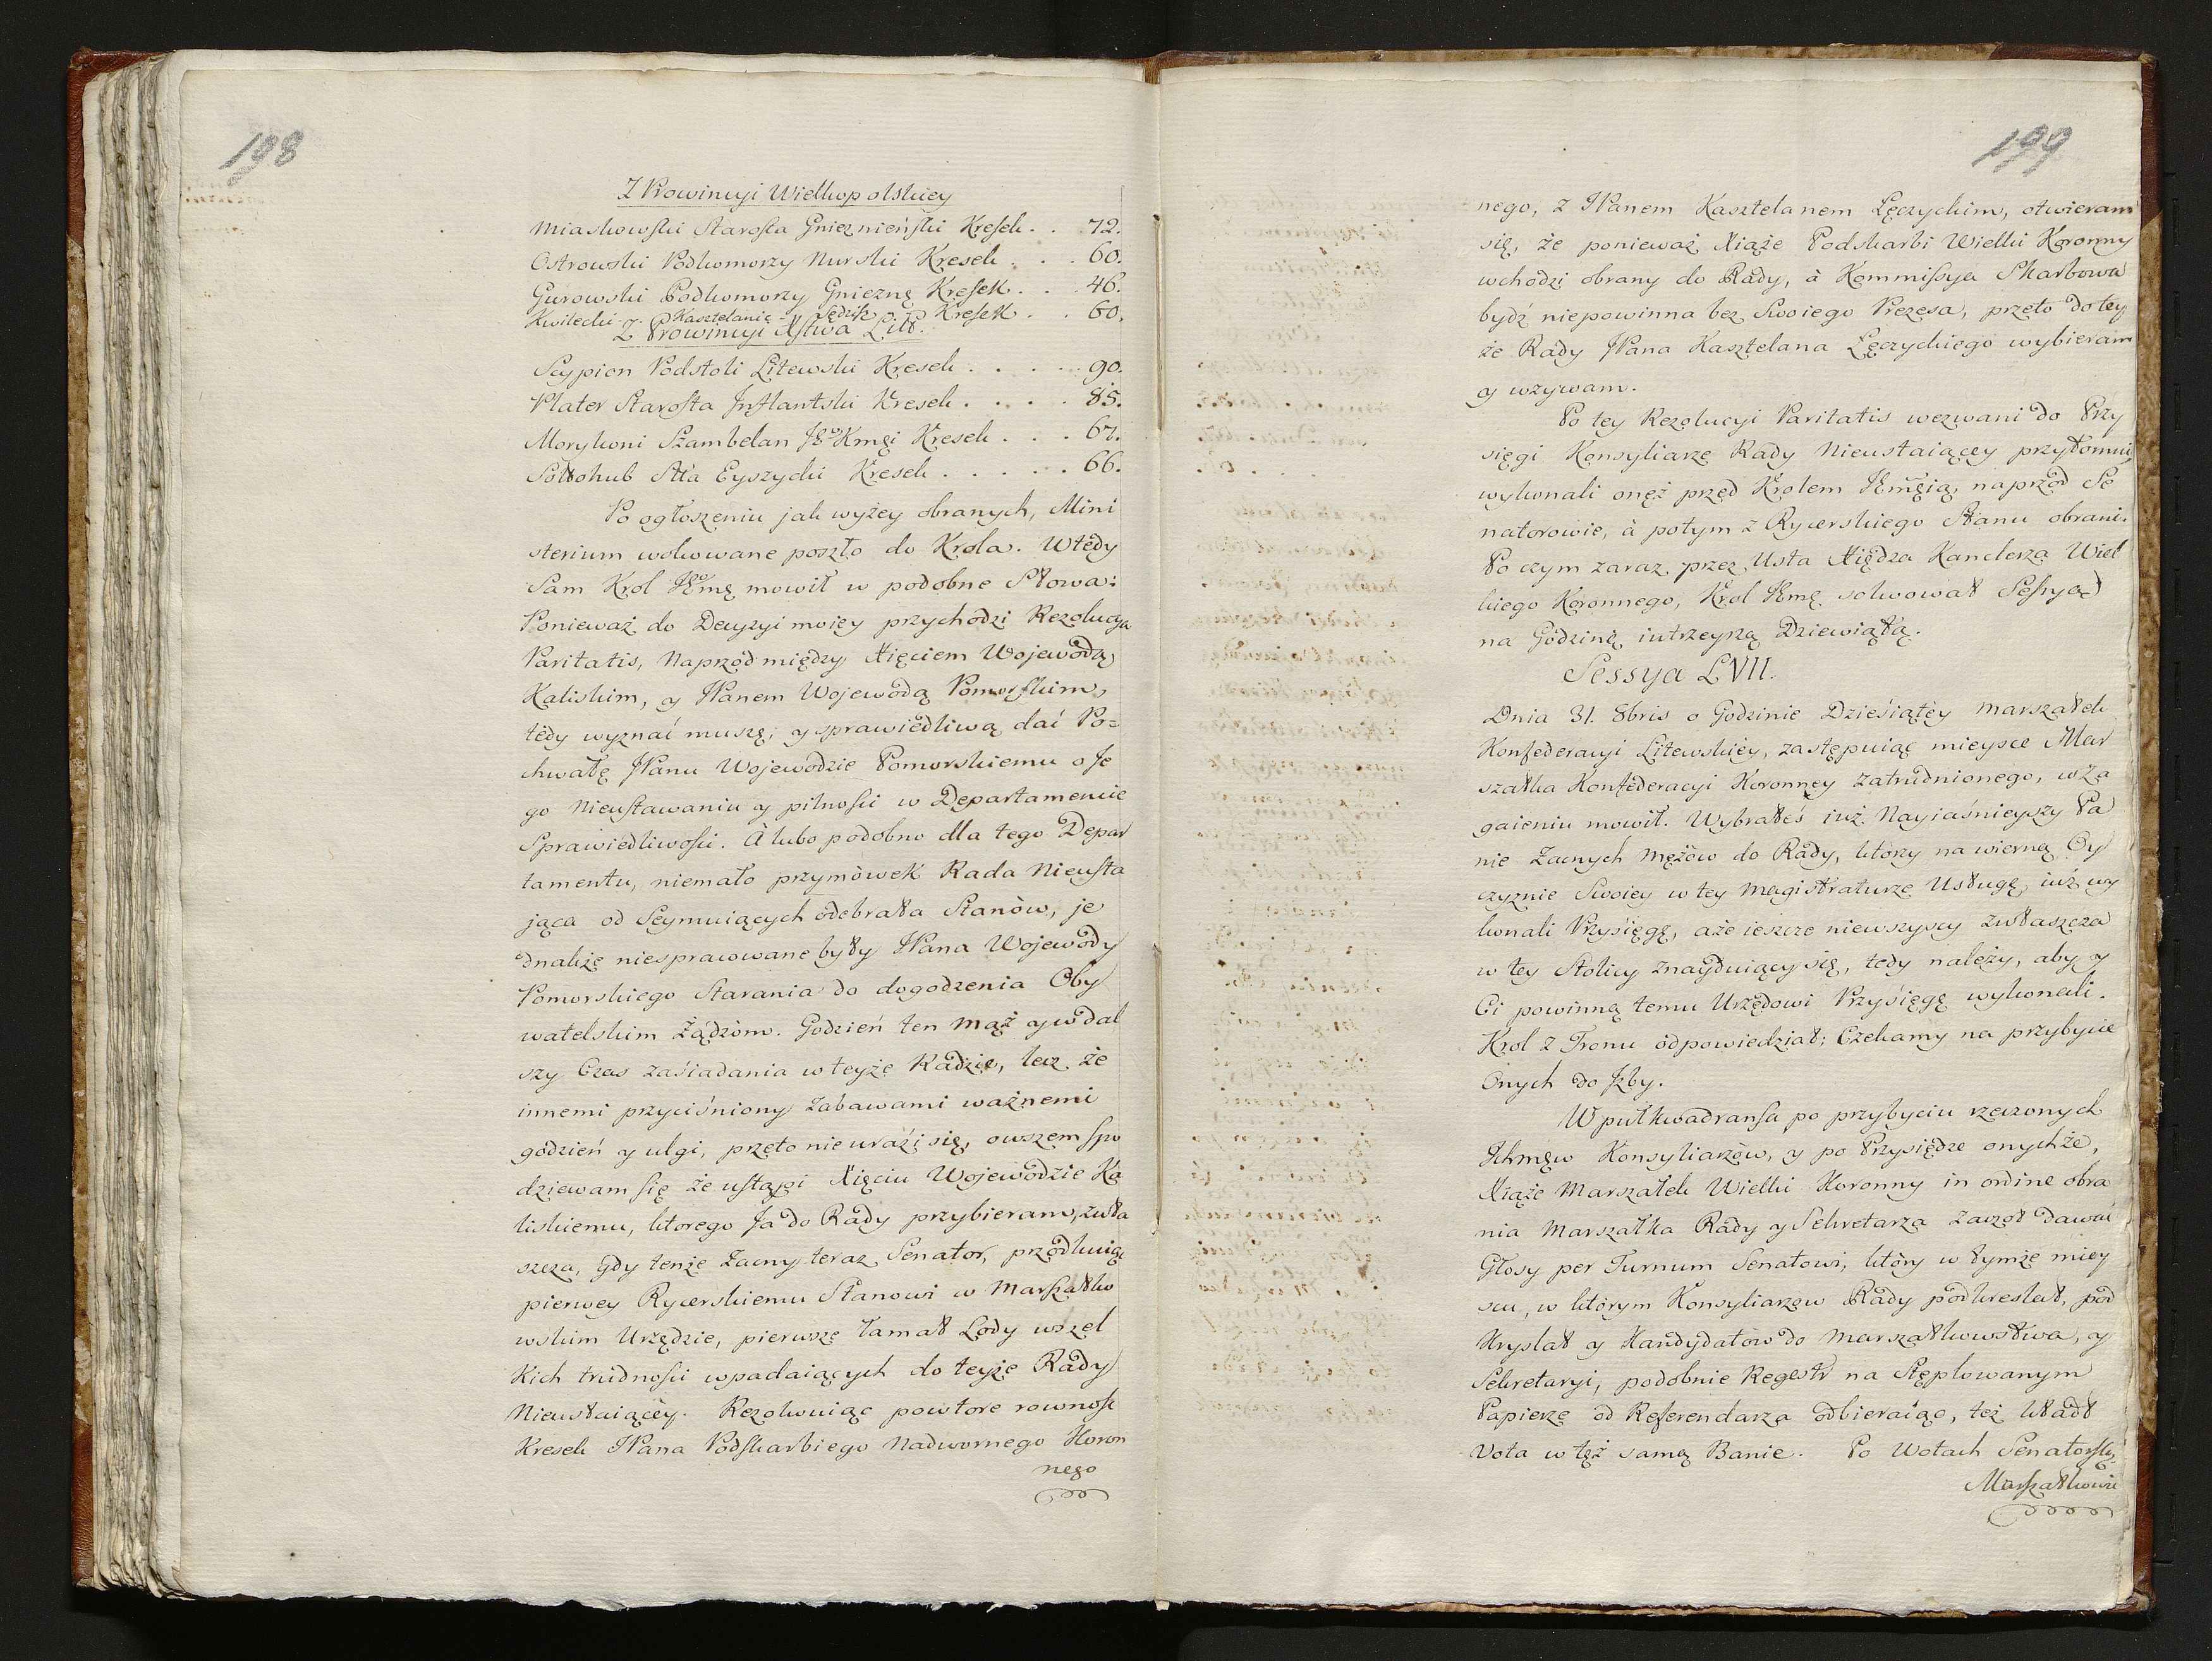 198
Z Prowincyi Wielkopolskiey
Miaskowski Starosta Gnieznieński Kresek . . 72.
Ostrowski Podkomorzy Nurski Kresek . . . 60.
Gurowski Podkomorzy Gniezną Kresek . . . 46.
Kwilecki Kasztelanic Sędzic Kresek . . 60.
Z Prowincyi Xstwa Litt.
Scypion Podstoli Litewski Kresek . . . . . 90.
Plater Starosta Inflantski Kresek . . . . 85.
Morykoni Szambelan JKMęi Kresek . . . 67.
Sołłohub Stta Eyszycki Kresek . . . . . . 66.
Po ogłoszeniu jak wyżey obranych, Mini
sterium wokowane poszło do Krola. Wtedy
Sam Krol JKmę mowił w podobne Słowa:
Ponieważ do Decyzyi moiey przychodzi Rezolucya
Paritatis, Naprzód między Xięciem Wojewodą
Kaliskim, y JPanem Wojewodą Pomorskim,
tedy wyznać muszę, y sprawiedliwą dać Po=
chwałę JPanu Wojewodzie Pomorskiemu o Je
go Nieustawaniu y pilności w Departamencie
Sprawiedliwości. A lubo podobno dla tego Depar
tamentu, niemało przymòwek Rada Nieusta
jąca od Seymuiących odebrała Stanòw, je
dnakże niesprawowane były JPana Wojewody
Pomorskiego Starania do dogodzenia Oby
watelskim Żądzòm. Godzień ten Mąż y w dal
szy Czas zasiadania w teyże Radzie, lecz że
innemi przyciśniony zabawami ważnemi
godzień y ulgi, przeto nie urazi się, owszem spo
dziewam się że ustąpi Xięciu Wojewodzie Ka
liskiemu, ktorego Ja do Rady przybieram, zwła
szcza, Gdy tenże Zacny teraz Senator, przodkuiąc
pierwey Rycerskiemu Stanowi w Marszałko
wskim Urzędzie, pierwsze łamał Lody wszel
kich trudności wpadaiących do teyże Rady
Nieustaiącey. Rezolwuiąc powtore rownosc
Kresek JPana Podskarbiego Nadwornego Koron
nego
199
nego, z JPanem Kasztelanem Łęczyckim, otwieram
się, że ponieważ Xiąże Podskarbi Wielki Koronny
wchodzi obrany do Rady, à Kommissya Skarbowa
bydź niepowinna bez Swoiego Prezesa, przeto do tey
że Rady JPana Kasztelana Łęczyckiego wybieram
y wzywam.
Po tey Rezolucyi Paritatis wezwani do Przy
sięgi Konsyliarze Rady Nieustaiącey przytomni,
wykonali onęż przed Krolem JKmęią, naprzod Se
natorowie, à potym z Rycerskiego Stanu obrani.
Po czym zaraz przez Usta Xiędza Kanclerza Wiel
kiego Koronnego, Krol JKmę solwował Sessyą
na Godzinę iutrzeyszą Dziewiątą.
Sessya LVII.
Dnia 31. 8bris o Godzinie Dziesiątey Marszałek
Konfederacyi Litewskiey, zastępuiąc mieysce Mar
szałka Konfederacyi Koronney zatrudnionego, w za
gaieniu mowił. Wybrałeś iuż Nayiaśnieyszy Pa
nie Zacnych Mężòw do Rady, ktòrzy na wierną Oy
czyznie Swoiey w tey Magistraturze Usługę, iuż wy
konali Przysięgę, aże ieszcze niewszyscy zwłaszcza
w tey Stolicy znayduiący się, tedy należy, aby y
Ci powinną temu Urzędowi Przysięgę wykonali.
Krol z Tronu odpowiedział; Czekamy na przybycie
Onych do Izby.
W pułkwadransa po przybyciu rzeczonych
Ichmęw Konsyliarzòw, y po Przysiędze onychże,
Xiąże Marszałek Wielki Koronny in ordine obra
nia Marszałka Rady y Sekretarza zaczoł dawać
Głosy per Turnum Senatowi, ktòry w tymże miey
scu, w ktòrym Konsyliarzow Rady podkreslał, pod
kryslał y Kandydatòw do Marszałkowstwa, y
Sekretaryi, podobnie Regestr na Stęplowanym
Papierze od Referendarza odbieraiąc, też kładł
Vota w tęż samą Banie. Po Wotach Senatorsk:
Marszałkowie